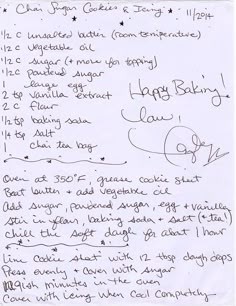 Chai Sugar Cookies & Icing 11/2014
1/2 c unsalted butter (room temperature)
1/2 c vegetable oil
1/2 c sugar (+ more for topping)
1/2 c powdered sugar
1 large egg
2 tsp vanilla extract
2 c flour
1/2 tsp baking soda
1/4 tsp salt
1 chai tea bag
Happy Baking!
Oven at 350°F, grease cookie sheet
Beat butter + add vegetable oil
Add sugar, powdered sugar, egg + vanilla
Stir in flour, baking soda + salt (+ tea!)
Chill the soft dough for about 1 hour
Line cookie sheet with 12 tbsp dough drops
Press evenly + cover with sugar
minutes in the oven
Cover with icing when cool completely